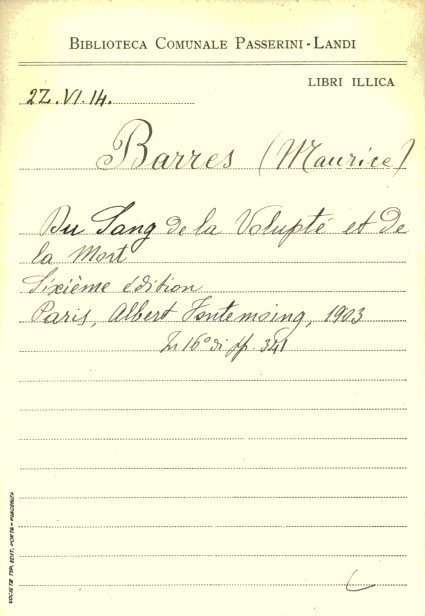 BIBLIOTECA COMUNALE PASSERINI-LANDI
LIBRI ILLICA
27.VI.14.
Barres (Maurice)
Du Sang de la Volupté et de
la Mort
Sixième édition
Paris, Albert Fontemoing, 1903
In 16° di pp. 341
SOCIETÀ TIP. EDIT. PORTA-PIACENZA